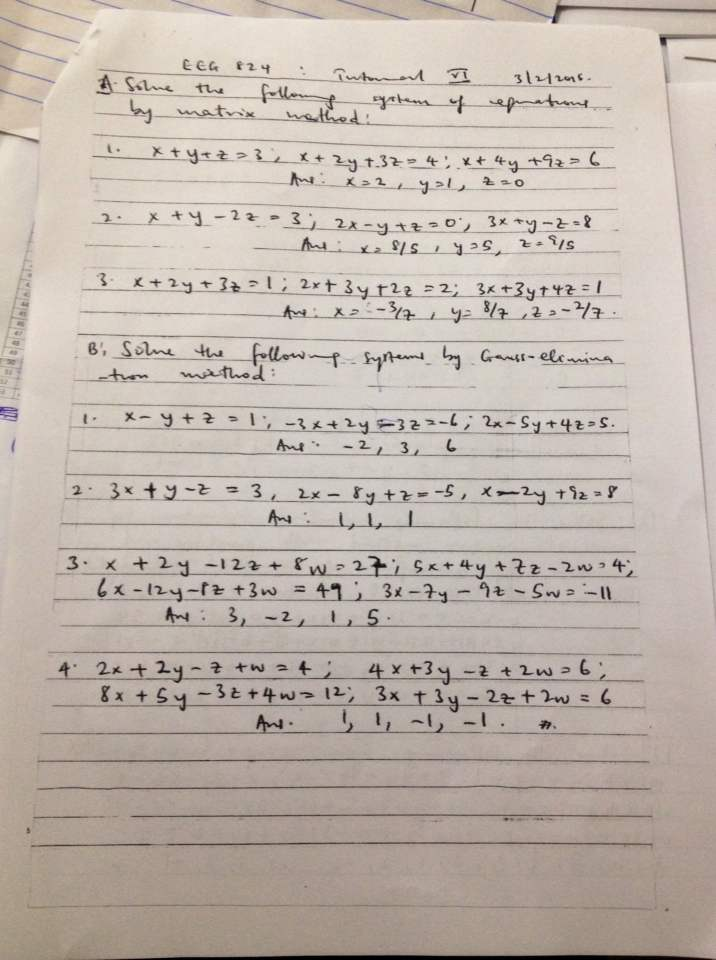 EEG 824 : Tutorial VI 3/2/2016.
A. Solve the following system of equations
by matrix method:
1. x+y+z=3; x+2y+3z=4; x+4y+9z=6
Ans: x=2, y=1, z=0
2. x+y-2z=3; 2x-y+z=0; 3x+y-z=8
Ans: x=8/5, y=5, z=9/5
3. x+2y+3z=1; 2x+3y+2z=2; 3x+3y+4z=1
Ans: x=-3/7, y=8/7, z=-2/7.
B. Solve the following systems by Gauss-elimina
-tion method:
1. x-y+z=1; -3x+2y-3z=-6; 2x-5y+4z=5.
Ans: -2, 3, 6
2. 3x+y-z=3, 2x-8y+z=-5, x-2y+9z=8
Ans: 1, 1, 1
3. x+2y-12z+8w=27; 5x+4y+7z-2w=4;
6x-12y-8z+3w=49; 3x-7y-9z-5w=-11
Ans: 3, -2, 1, 5.
4. 2x+2y-z+w=4; 4x+3y-z+2w=6;
8x+5y-3z+4w=12; 3x+3y-2z+2w=6
Ans. 1, 1, -1, -1. #.